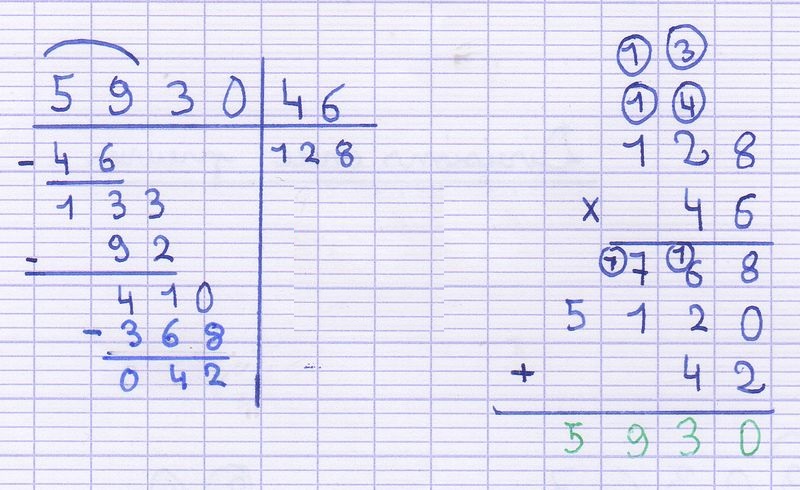 5 9 3 0 46
- 4 6 128
1 3 3
- 9 2
4 1 0
- 3 6 8
0 4 2
1 3
1 4
1 2 8
x 4 6
1 7 1 6 8
5 1 2 0
+ 4 2
5 9 3 0